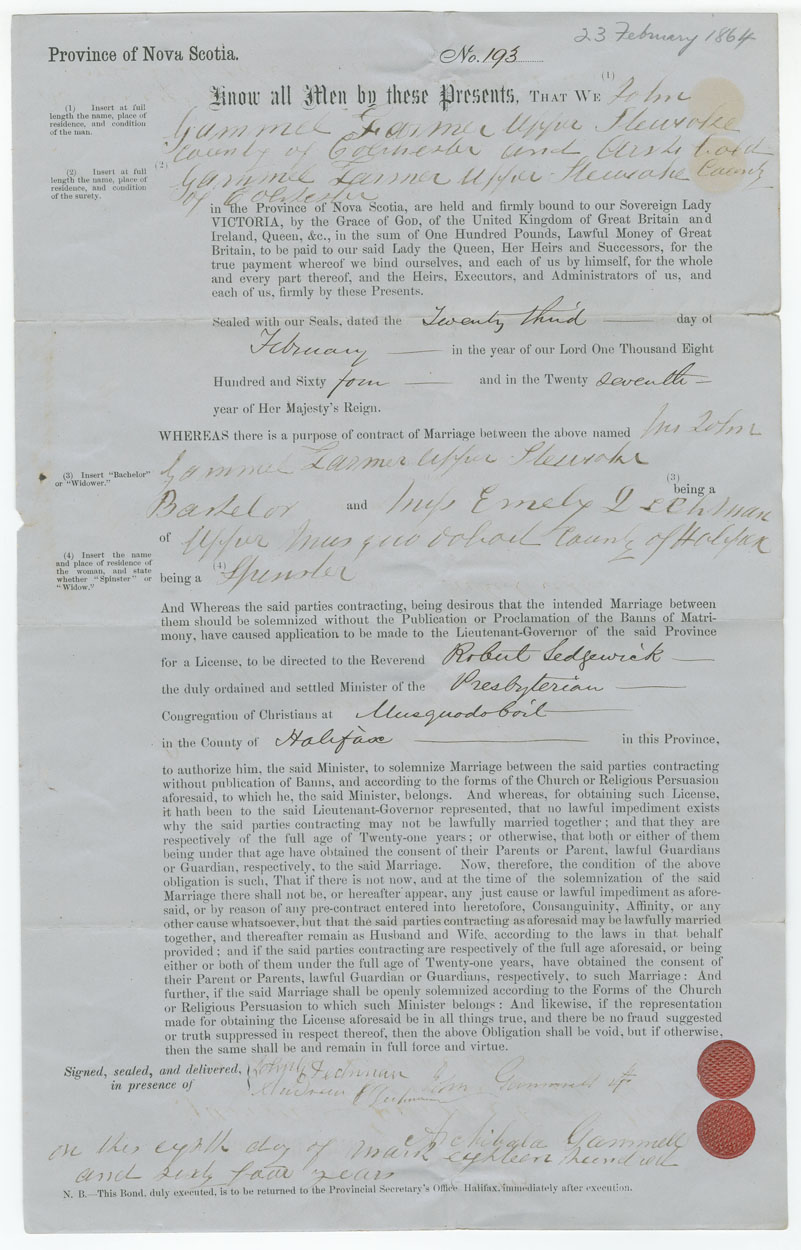 23 February 1864
Province of Nova Scotia.
No. 193
Know all Men by these Presents, THAT WE (1) John
(1) Insert at full
length the name, place of
residence, and condition
of the man.
Gammel Farmer Upper Stewiake
County of Colchester and Archibald
(2) Insert at full
length the name, place of
residence, and condition
of the surety.
(2) Gammel Farmer Upper Stewiake County
of Colchester
in the Province of Nova Scotia, are held and firmly bound to our Sovereign Lady
VICTORIA, by the Grace of GOD, of the United Kingdom of Great Britain and
Ireland, Queen, &c., in the sum of One Hundred Pounds, Lawful Money of Great
Britain, to be paid to our said Lady the Queen, Her Heirs and Successors, for the
true payment whereof we bind ourselves, and each of us by himself, for the whole
and every part thereof, and the Heirs, Executors, and Administrators of us, and
each of us, firmly by these Presents.
Sealed with our Seals, dated the Twenty third day of
February in the year of our Lord One Thousand Eight
Hundred and Sixty four and in the Twenty seventh
year of Her Majesty's Reign.
WHEREAS there is a purpose of contract of Marriage between the above named John
Gammel Farmer Upper Stewiake
(3) Insert "Bachelor"
or "Widower."
(3)
being a
Bachelor and Miss Emely
of Upper Musquodoboit County of Halifax
(4) Insert the name
and place of residence of
the woman, and state
whether "Spinster" or
"Widow."
being a (4) Spinster
And Whereas the said parties contracting, being desirous that the intended Marriage between
them should be solemnized without the Publication or Proclamation of the Banns of Matri-
mony, have caused application to be made to the Lieutenant-Governor of the said Province
for a License, to be directed to the Reverend Robert Sedgewick
the duly ordained and settled Minister of the Presbyterian
Congregation of Christians at Musquodoboit
in the County of Halifax in this Province,
to authorize him, the said Minister, to solemnize Marriage between the said parties contracting
without publication of Banns, and according to the forms of the Church or Religious Persuasion
aforesaid, to which he, the said Minister, belongs. And whereas, for obtaining such License,
it hath been to the said Lieutenant-Governor represented, that no lawful impediment exists
why the said parties contracting may not be lawfully married together; and that they are
respectively of the full age of Twenty-one years; or otherwise, that both or either of them
being under that age have obtained the consent of their Parents or Parent, lawful Guardians
or Guardian, respectively, to the said Marriage. Now, therefore, the condition of the above
obligation is such, That if there is not now, and at the time of the solemnization of the said
Marriage there shall not be, or hereafter appear, any just cause or lawful impediment as afore-
said, or by reason of any pre-contract entered into heretofore, Consanguinity, Affinity, or any
other cause whatsoever, but that the said parties contracting as aforesaid may be lawfully married
together, and thereafter remain as Husband and Wife, according to the laws in that behalf
provided; and if the said parties contracting are respectively of the full age aforesaid, or being
either or both of them under the full age of Twenty-one years, have obtained the consent of
their Parent or Parents, lawful Guardian or Guardians, respectively, to such Marriage: And
further, if the said Marriage shall be openly solemnized according to the Forms of the Church
or Religious Persuasion to which such Minister belongs: And likewise, if the representation
made for obtaining the License aforesaid be in all things true, and there be no fraud suggested
or truth suppressed in respect thereof, then the above Obligation shall be void, but if otherwise,
then the same shall be and remain in full force and virtue.
Signed, sealed, and delivered,
in presence of
John Gammell
Archibald Gammell
on this eighth day of March eighteen hundred
and sixty four years
N. B.—This Bond, duly executed, is to be returned to the Provincial Secretary's Office, Halifax, immediately after execution.